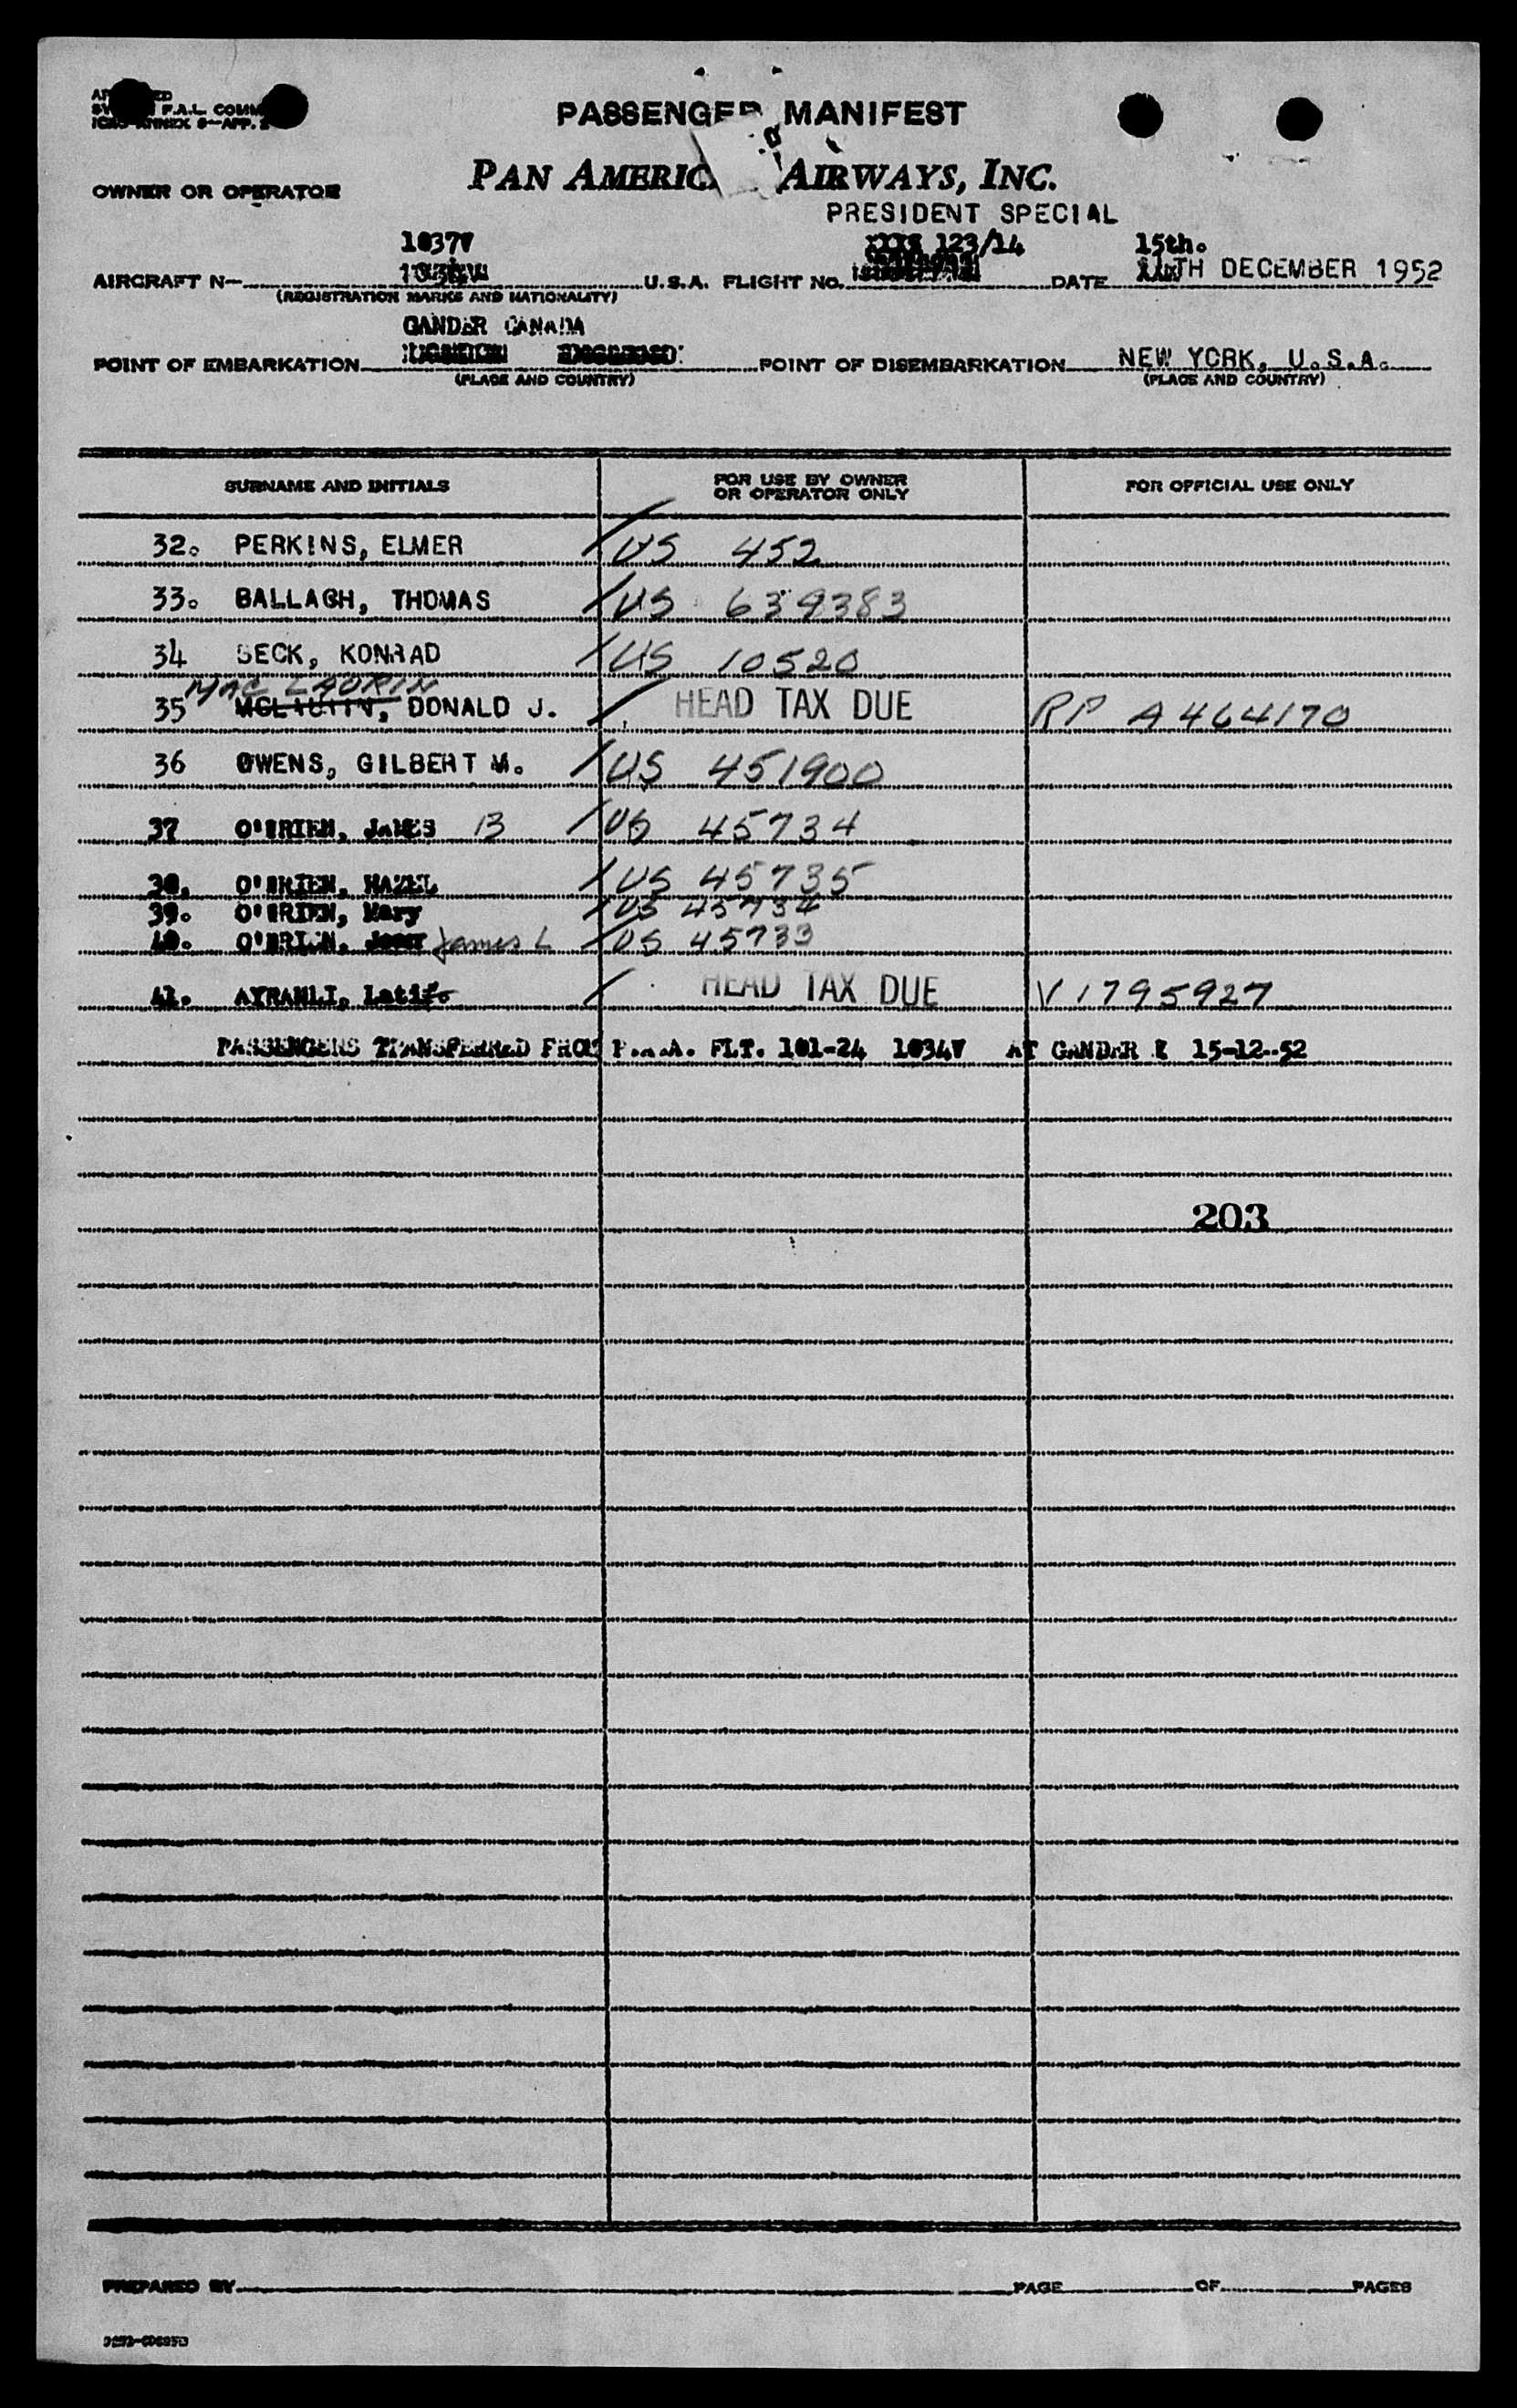 F.A.L. COMM
ANNEX 9—APP. 2
PASSENGER MANIFEST
OWNER OR OPERATOR
PAN AMERIC AIRWAYS, INC.
PRESIDENT SPECIAL
1037V 123/14 15th.
AIRCRAFT N— U.S.A. FLIGHT NO. DATE TH DECEMBER 1952
(REGISTRATION MARKS AND NATIONALITY)
GANDER CANADA
POINT OF EMBARKATION POINT OF DISEMBARKATION NEW YORK, U.S.A.
(PLACE AND COUNTRY) (PLACE AND COUNTRY)
SURNAME AND INITIALS FOR USE BY OWNER OR OPERATOR ONLY FOR OFFICIAL USE ONLY
32. PERKINS, ELMER / US 452
33. BALLAGH, THOMAS / US 639383
34 BECK, KONRAD / US 10520
MAC LAURIN
35 DONALD J. / HEAD TAX DUE RP A464170
36 OWENS, GILBERT M. / US 451900
37 O'BRIEN, JAMES B / US 45734
38. O'BRIEN, HAZEL / US 45735
39. O'BRIEN, Mary / US 45734
40. O'BRIEN, James L / US 45733
41. AYRANLI, Latife / HEAD TAX DUE V1795927
PASSENGERS TRANSFERRED FROM P.A.A. FLT. 101-24 1034V AT GANDER 15-12-52
203
PREPARED BY PAGE OF PAGES